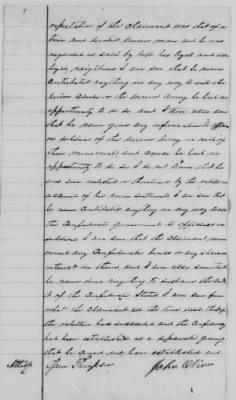 reputation of the Claimant was that of a
true and devoted Union man and he was
regarded as such by both his loyal and dis
loyal neighbors I am sure that he never
contributed anything in any way to aid the
Union cause or the Union Army he had no
opportunity to do so and I am also sure
that he never gave any information to officers
or soldiers of the Union Army in aid of
their movements and again he had no
opportunity to do so I do not know that he
was ever molested or threatened by the rebels on
account of his union sentiments I am sure that
he never contributed anything in any way to aid
the Confederate Government its officers or
soldiers I am sure that the Claimant never
owned any Confederate bonds or any share or
interest in them and I am also sure that
he never done anything to sustain the cred
it of the Confederate States I am sure from
what the Claimant all the time said that if
the rebellion had succeeded and the Confederacy
had been established as a separate government
that he could not have established
Attest
Thompson
John Oliver